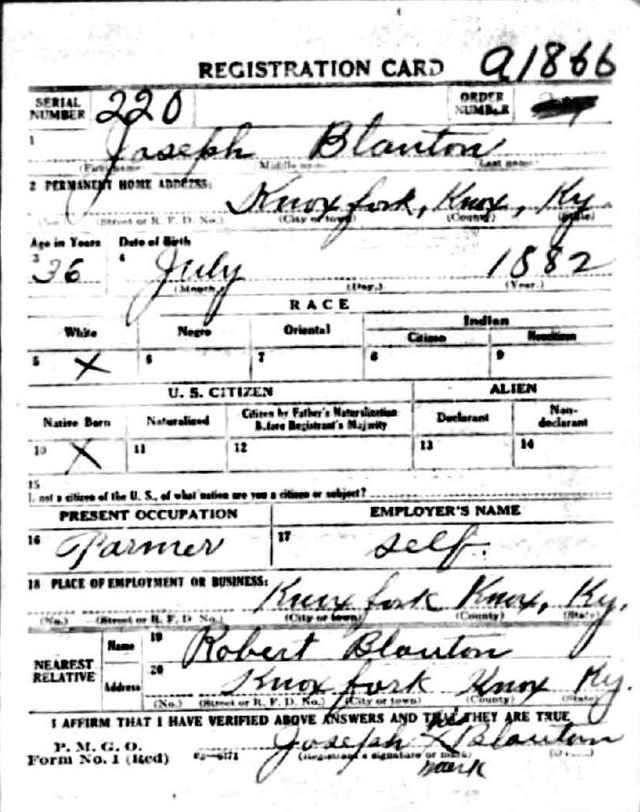 REGISTRATION CARD A1866
SERIAL NUMBER 220 ORDER NUMBER
1 Joseph Blanton
(First name) (Middle name) (Last name)
2 PERMANENT HOME ADDRESS:
Knox fork, Knox, Ky.
(No.) (Street or R. F. D. No.) (City or town) (County) (State)
Age in Years Date of Birth
3 36 4 July 1882
(Month.) (Day.) (Year.)
RACE
White Negro Oriental Indian
Citizen Noncitizen
5 X 6 7 8 9
U. S. CITIZEN ALIEN
Native Born Naturalized Citizen by Father's Naturalization Before Registrant's Majority Declarant Non-declarant
10 X 11 12 13 14
15
If not a citizen of the U. S., of what nation are you a citizen or subject?
PRESENT OCCUPATION EMPLOYER'S NAME
16 Farmer 17 self.
18 PLACE OF EMPLOYMENT OR BUSINESS:
Knox fork Knox, Ky.
(No.) (Street or R. F. D. No.) (City or town) (County) (State)
NEAREST RELATIVE Name 19 Robert Blanton
Address 20 Knox fork Knox Ky.
(No.) (Street or R. F. D. No.) (City or town) (County) (State)
I AFFIRM THAT I HAVE VERIFIED ABOVE ANSWERS AND THAT THEY ARE TRUE
P. M. G. O.
Form No. 1 (Red) Joseph his X mark Blanton
(Registrant's signature or mark)